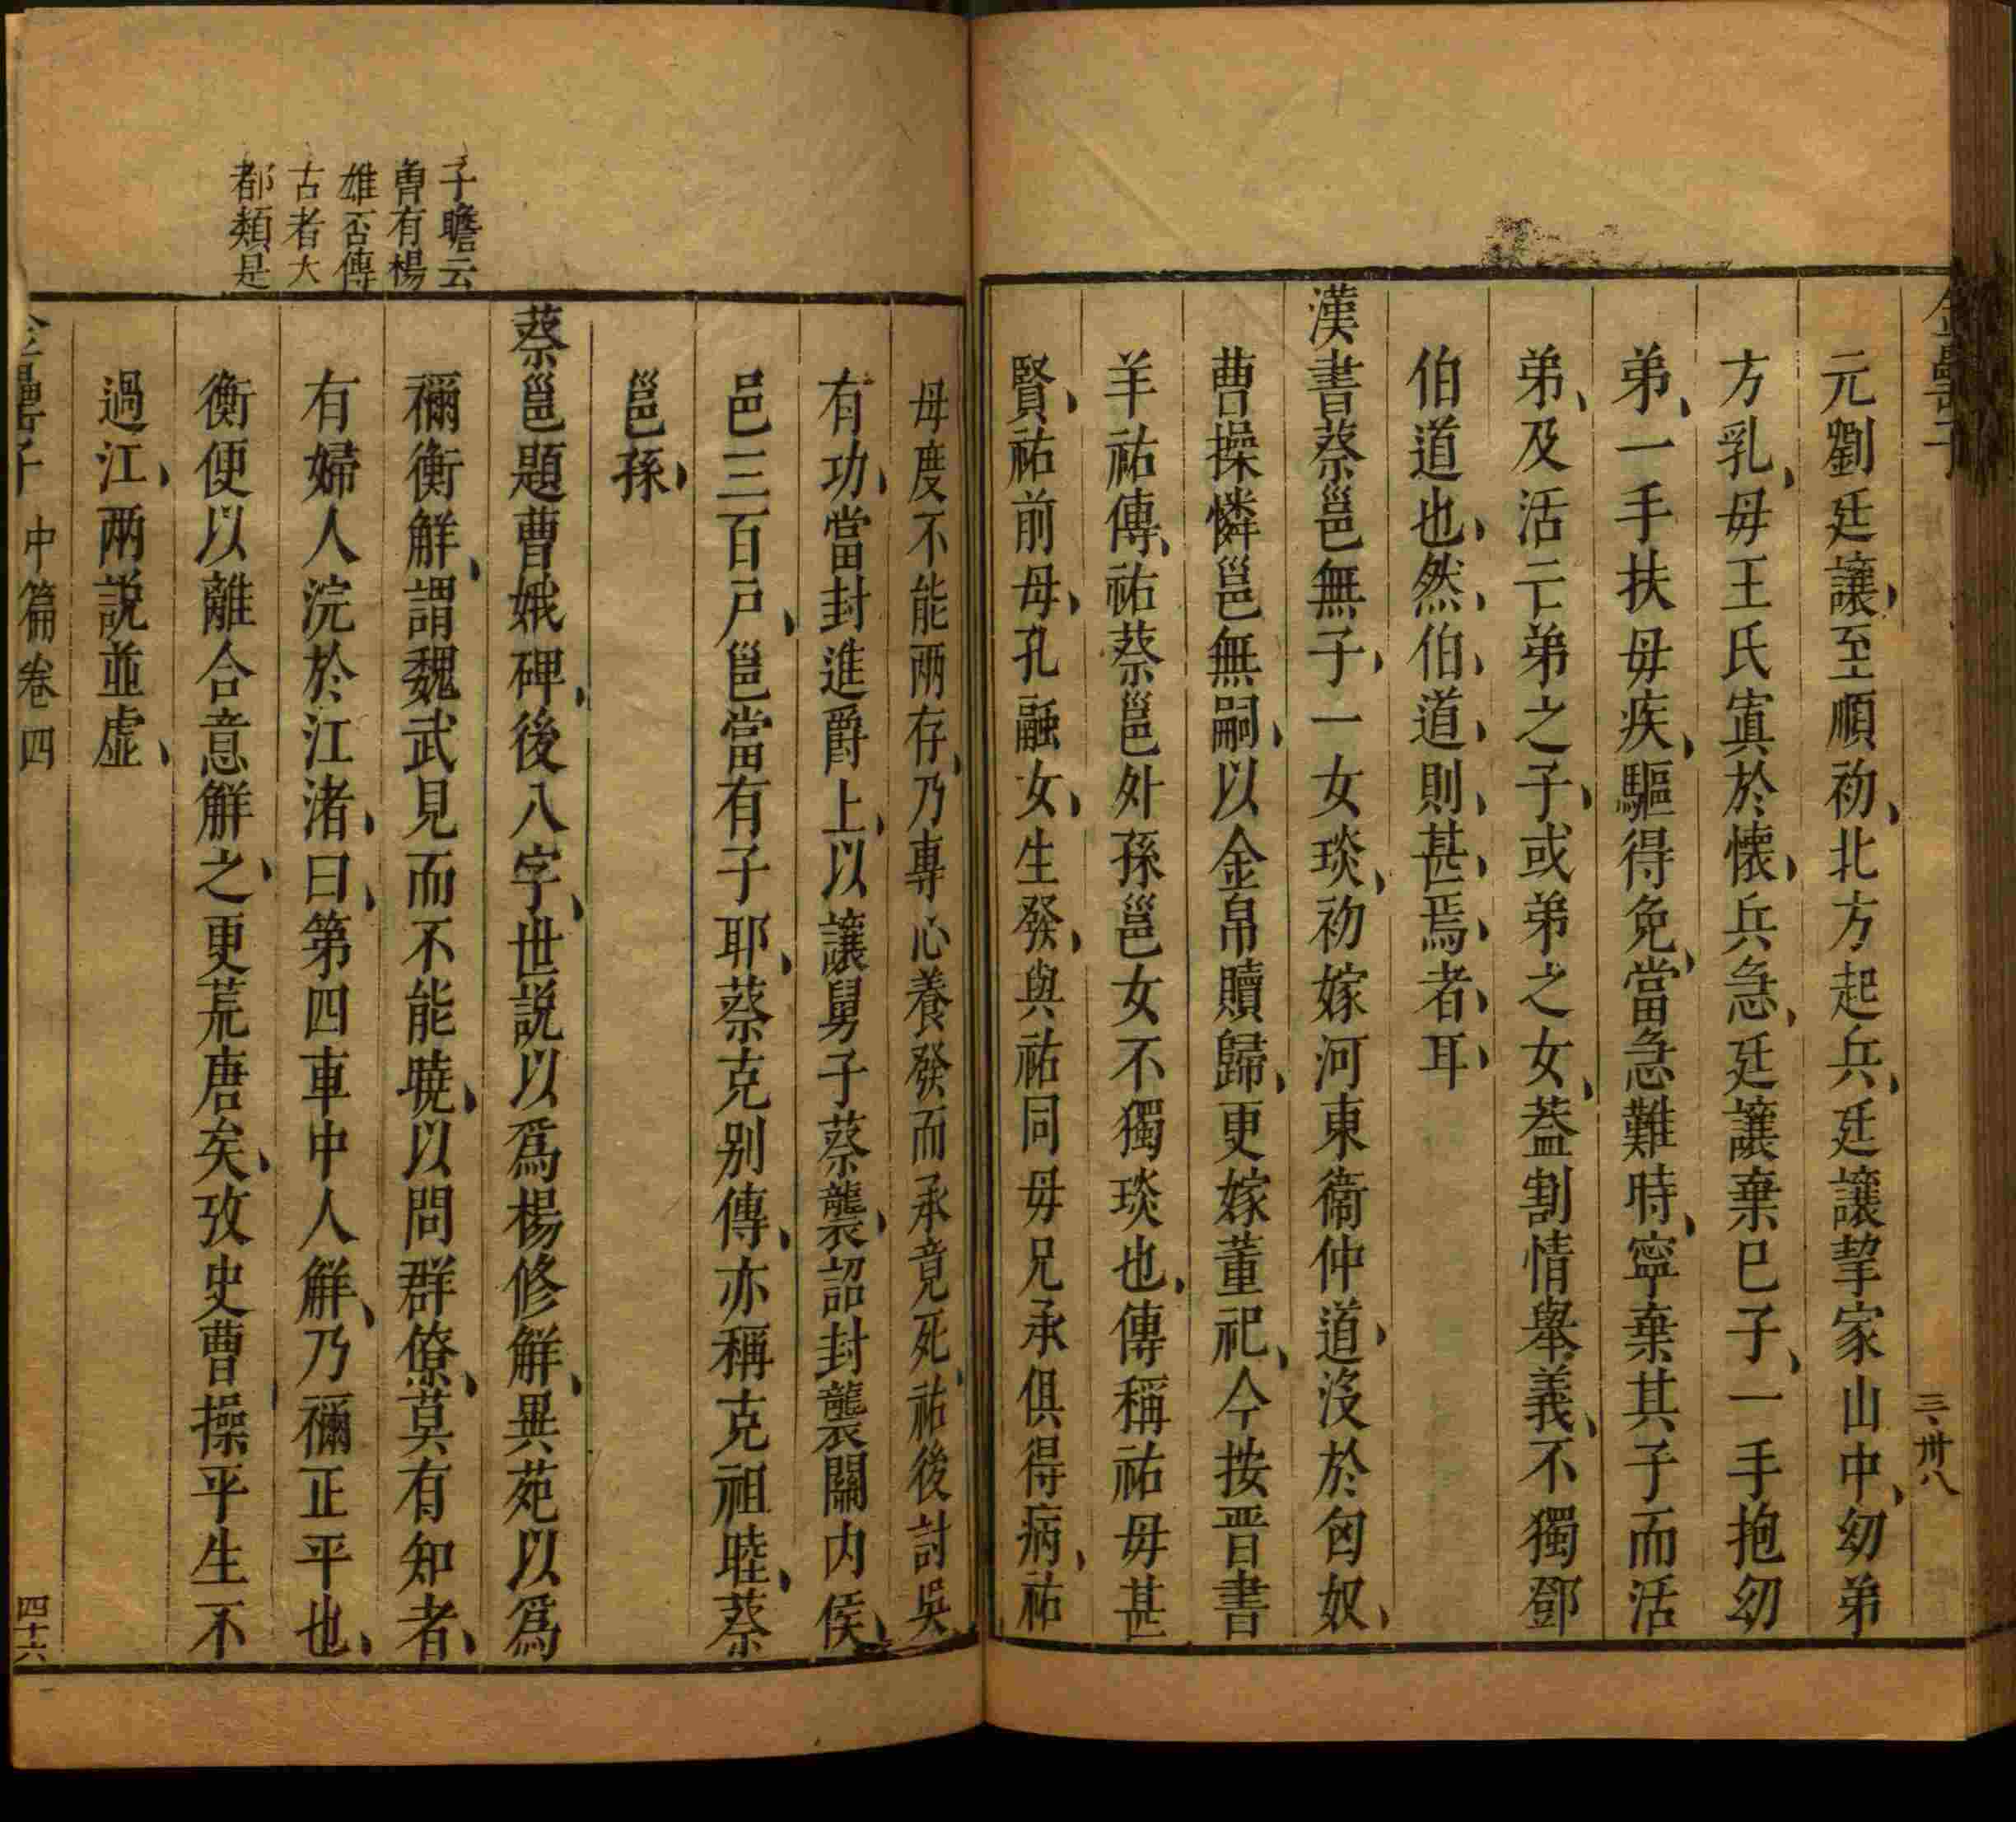 元劉廷讓至順初北方起兵廷讓挈家山中幼弟
方乳毋王氏寘於懷兵急廷讓棄巳子一手抱幼
弟一手扶毋疾驅得免當急難時寧棄其子而活
弟及活亡弟之子或弟之女葢割情舉義不獨鄧
伯道也然伯道則甚焉者耳
漢書蔡邕無子一女琰初嫁河東衞仲道沒於匈奴
曹操憐邕無嗣以金帛贖歸更嫁董祀今按晋書
羊祐傳祐蔡邕外孫邕女不獨琰也傳稱祐毋甚
賢祐前毋孔融女生發與祐同毋兄承俱得病祐
毋度不能兩存乃專心養發而承竟死祐後討吳
有功當封進爵上以讓舅子蔡襲詔封襲關内侯
邑三百戸邕當有子耶蔡克别傳亦稱克祖睦蔡
邕孫
子瞻云
曽有楊
雄否傳
古者大
都類是
蔡邕題曹娥碑後八字世説以爲楊修觧異苑以爲
禰衡觧謂魏武見而不能曉以問群僚莫有知者
有婦人浣於江渚曰第四車中人觧乃禰正平也
衡便以離合意觧之更荒唐矣攷史曹操平生不
過江兩説並虛
中篇卷四
四十六